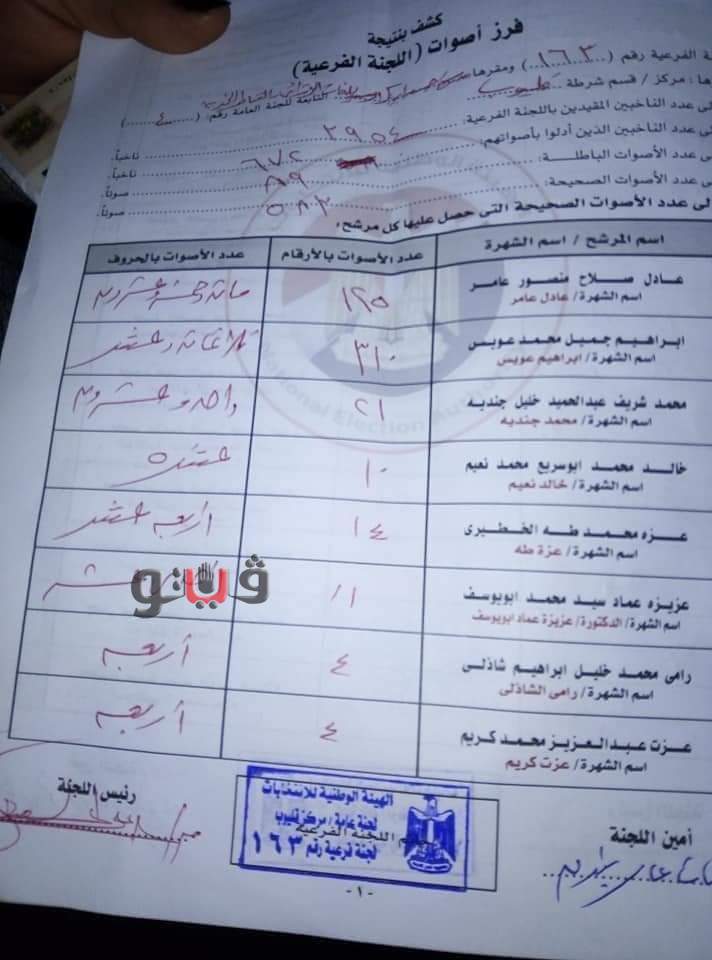 كشف بنتيجة
فرز أصوات (اللجنة الفرعية)
الفرعية رقم (١٦٣) ومقرها
مركز / قسم شرطة قليوب التابعة للجنة العامة رقم: (٤)
عدد الناخبين المقيدين باللجنة الفرعية: ٣٩٥٤ ناخباً.
عدد الناخبين الذين أدلوا بأصواتهم: ٦٧٢ ناخباً.
عدد الأصوات الباطلة: ٨٩ صوتاً.
عدد الأصوات الصحيحة: ٥٨٣ صوتاً.
عدد الأصوات الصحيحة التى حصل عليها كل مرشح:
اسم المرشح / اسم الشهرة عدد الأصوات بالأرقام عدد الأصوات بالحروف
عادل صلاح منصور عامر ١٢٥ مائة وخمسة وعشرون
اسم الشهرة/ عادل عامر
ابراهيم جميل محمد عويس ٣١٠ ثلاثمائة وعشر
اسم الشهرة/ ابراهيم عويس
محمد شريف عبدالحميد خليل جنديه ٢١ واحد وعشرون
اسم الشهرة/ محمد جنديه
خالد محمد ابوسريع محمد نعيم ١٠ عشرة
اسم الشهرة/ خالد نعيم
عزه محمد طه الخطيرى ١٤ أربعه عشر
اسم الشهرة/ عزة طه
عزيزه عماد سيد محمد ابويوسف ١١ عشر
اسم الشهرة/ الدكتورة/ عزيزة عماد ابويوسف
ڤيتو
رامى محمد خليل ابراهيم شاذلى ٤ أربعه
اسم الشهرة/ رامى الشاذلى
عزت عبدالعزيز محمد كريم ٤ أربعه
اسم الشهرة/ عزت كريم
أمين اللجنة
رئيس اللجنة
الهيئة الوطنية للانتخابات
لجنة عامة / مركز قليوب
اللجنة الفرعية
لجنة فرعية رقم ١٦٣
-١-
National Election Authority